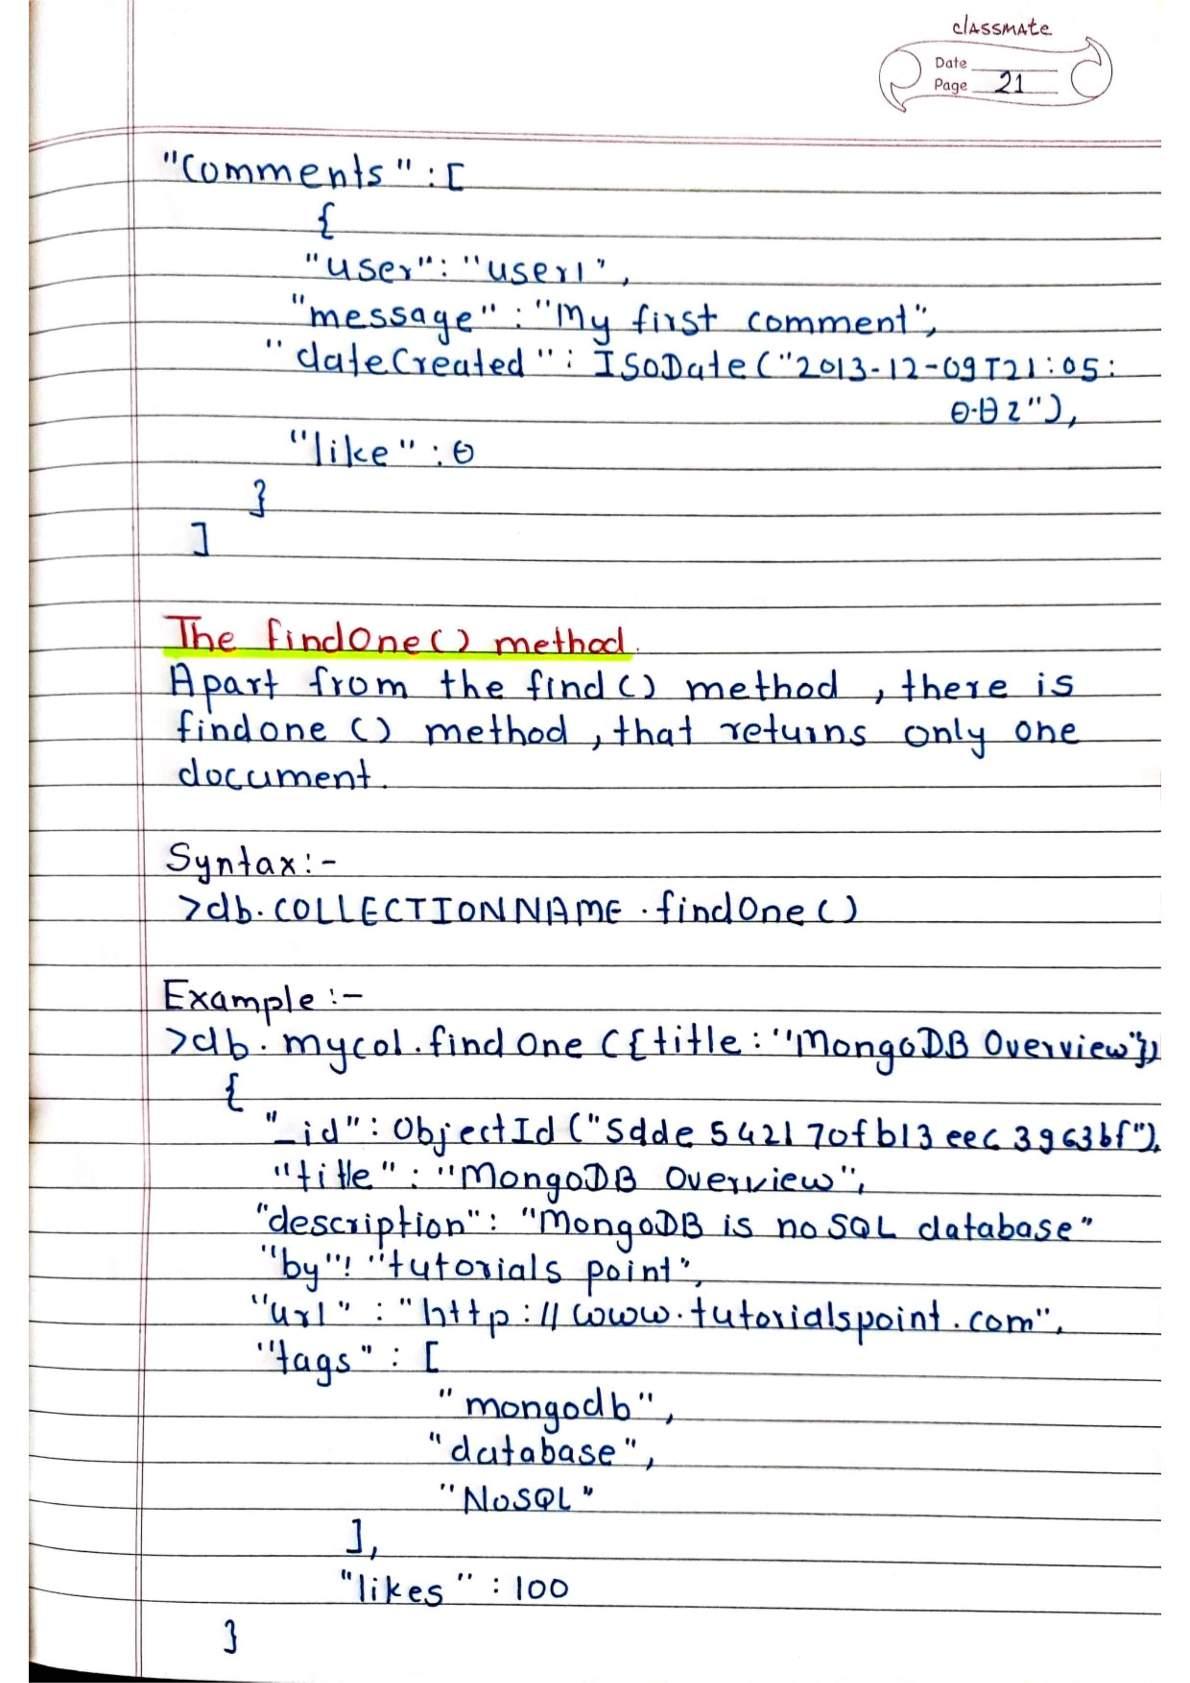 classmate
Date
Page 21
"Comments" : [
{
"user" : "user1",
"message" : "My first comment",
"dateCreated" : ISODate ("2013-12-09T21:05:
0.0z"),
"like" : 0
}
]
The findOne() method.
Apart from the find() method, there is
findone () method, that returns only one
document.
Syntax:-
>db.COLLECTIONNAME.findOne()
Example:-
>db.mycol.findOne({title:"MongoDB Overview"})
{
"_id" : ObjectId ("5dde542170fb13eec3963bf"),
"title" : "MongoDB Overview",
"description" : "MongoDB is no SQL database"
"by" : "tutorials point",
"url" : "http://www.tutorialspoint.com",
"tags" : [
"mongodb",
"database",
"NoSQL"
],
"likes" : 100
}